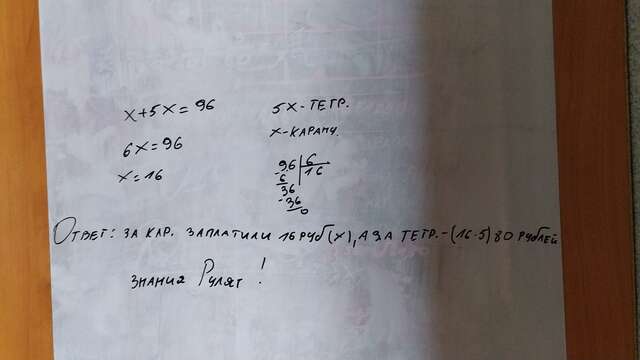 x+5x=96
5x-ТЕТР.
x-КАРАНД.
6x=96
x=16
96 6
- 6 16
36
- 36
0
ОТВЕТ: ЗА КАР. ЗАПЛАТИЛИ 16 РУБ(x), А ЗА ТЕТР.-(16·5) 80 РУБЛЕЙ
ЗНАНИЯ РУЛЯТ!